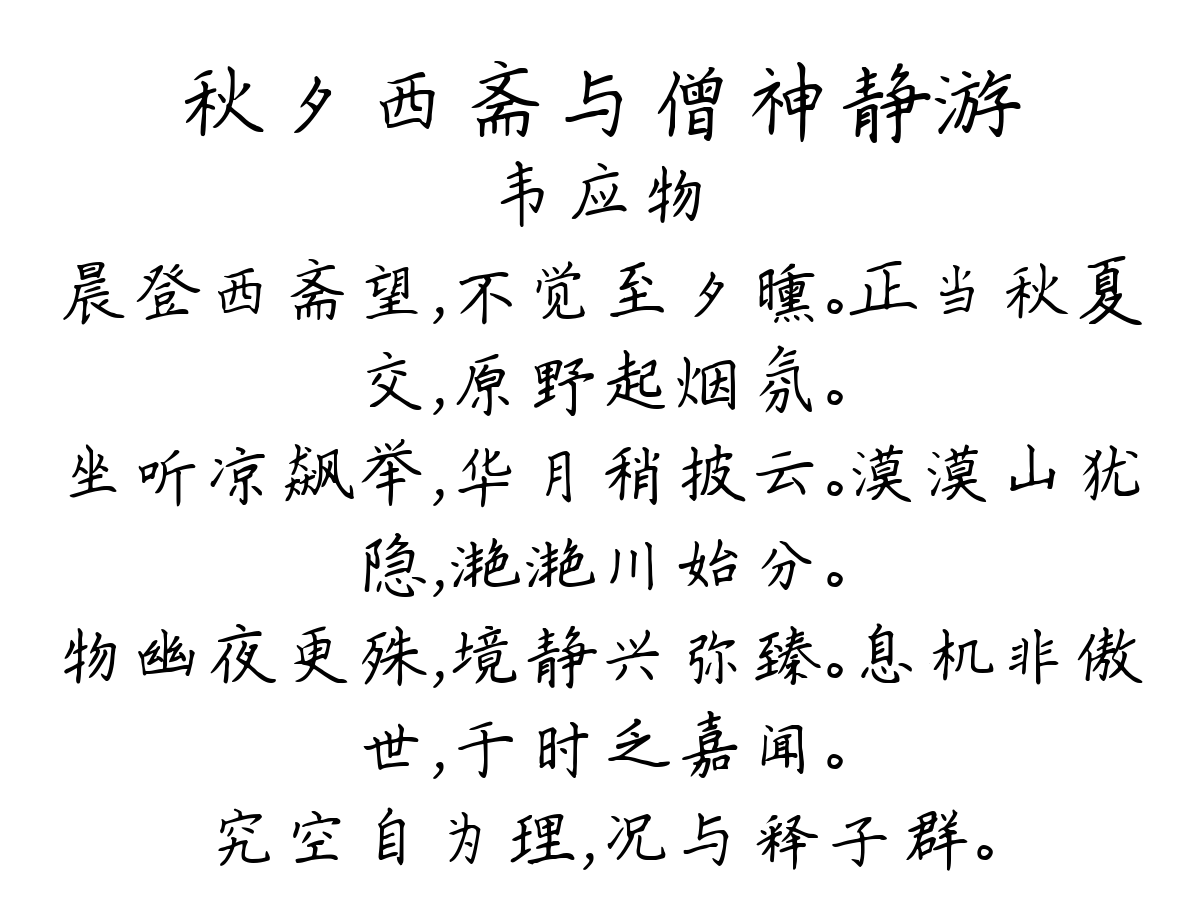 秋夕西斋与僧神静游
韦应物
晨登西斋望,不觉至夕曛。正当秋夏
交,原野起烟氛。
坐听凉飙举,华月稍披云。漠漠山犹
隐,滟滟川始分。
物幽夜更殊,境静兴弥臻。息机非傲
世,于时乏嘉闻。
究空自为理,况与释子群。